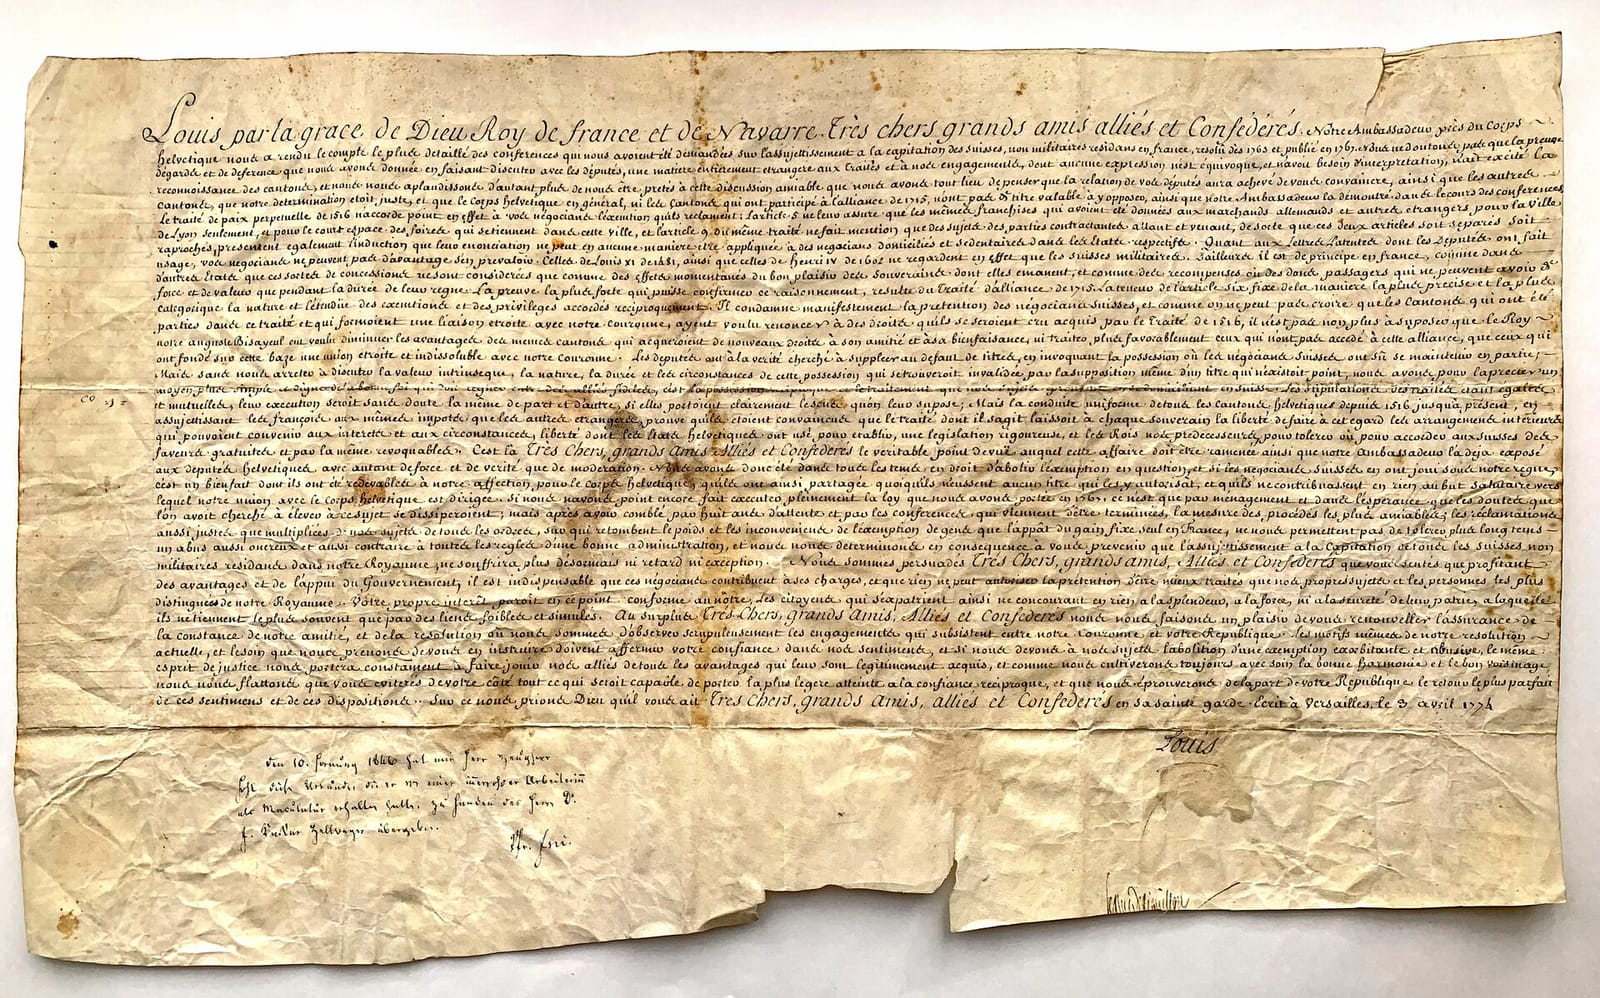 Louis par la grace de Dieu Roy de france et de Navarre, Très chers, grands amis alliés et Confedérés. Notre Ambassadeur près du Corps
helvetique nous a rendu le compte le plus detaillé des conferences qui nous avoient été demandées sur l'assujettissement a la capitation des Suisses, non militaires residans en france, resolu dès 1763 et publié en 1767. Nous ne doutons pas que la preuve
d'egards et de deference que nous avons donnée en faisant discuter avec les députés, une matiere entièrement etrangere aux traités et à nos engagements, dont aucune expression n'est equivoque, et n'avoit besoin d'interpretation, n'ait excité la
reconnoissance des cantons, et nous nous aplaudissons d'autant plus de nous être pretés à cette discussion amiable que nous avons tout lieu de penser que la relation de vos députés aura achevé de vous convaincre, ainsi que les autres
Cantons, que notre determination etoit juste, et que le Corps helvetique en général, ni les Cantons qui ont participé à l'alliance de 1715, n'ont pas de titre valable à y opposer, ainsi que notre Ambassadeur l'a demontré dans le cours des conferences.
Le traité de paix perpetuelle de 1516 n'accorde point en effet à vos négocians l'exemtion qu'ils reclament: l'article 5 ne leur assure que les mêmes franchises qui avoient été données aux marchands allemands et autres etrangers pour la Ville
de Lyon seulement, et pour le court espace des foires qui se tiennent dans cette ville, et l'article 9 du même traité ne fait mention que des sujets des parties contractantes allant et venant, de sorte que ces deux articles soit separés soit
raprochés, presentent egalement l'induction que leur enonciation ne peut en aucune maniere etre appliquée à des negocians domiciliés et sedentaires dans les Etats respectifs. Quant aux Lettres Patentes dont les Deputés ont fait
usage, vos negocians ne peuvent pas d'avantage s'en prevaloir. Celles de Louis XI de 1481, ainsi que celles de henri IV de 1602 ne regardent en effet que les suisses militaires. D'ailleurs il est de principe en france, comme dans
d'autres Etats que ces sortes de concessions ne sont considerées que comme des effets momentanés du bon plaisir des souverains dont elles emanent, et comme des recompenses ou des dons passagers qui ne peuvent avoir de
force et de valeur que pendant la durée de leur regne. La preuve la plus forte qui puisse confirmer ce raisonnement, resulte du Traité d'alliance de 1715. La teneur de l'article six fixe de la maniere la plus precise et la plus
categorique la nature et l'étendue des exemtions et des privileges accordés reciproquement. Il condamne manifestement la pretention des négocians Suisses, et comme on ne peut pas croire que les Cantons qui ont été
parties dans ce traité et qui formoient une liaison etroite avec notre couronne, ayent voulu renoncer à des droits qu'ils se seroient cru acquis par le Traité de 1516, il n'est pas non plus à suposer que le Roy
notre auguste Bisayeul ent voulu diminuer les avantages des memes cantons qui acqueroient de nouveaux droits à son amitié et à sa bienfaisance, ni traiter plus favorablement ceux qui n'ont pas accedé à cette alliance, que ceux qui
ont fondé sur cette baze une union etroite et indissoluble avec notre Couronne. Les deputés ont à la verité cherché à suppléer au defaut de titres, en invoquant la possession où les négocians Suisses ont sû se maintenir en partie;
Mais sans nous arreter à discuter la valeur intrinseque, la nature, la durée et les circonstances de cette possession qui se trouveroit invalidée par la supposition même d'un titre qui n'existoit point, nous avons pour l'aprecier un
moyen plus simple et digne de la bonne foi qui doit regner entre des alliés fideles, c'est la possession reciproque et le traitement que nos sujets domicilient en suisse. Les stipulations des traités etant egales
et mutuelles, leur execution seroit sans doute la même de part et d'autre, si elles portoient clairement le sens qu'on leur supose; Mais la conduite uniforme de tous les Cantons helvetiques depuis 1516 jusqu'à présent, en
assujettissant les françois aux mêmes impots que les autres etrangers, prouve qu'ils etoient convaincus que le traité dont il s'agit laissoit à chaque souverain la liberté de faire à cet egard les arrangemens interieurs
qui pouvoient convenir aux interets et aux circonstances, liberté dont les Etats helvetiques ont usé pour etablir une legislation rigoureuse, et les Rois nos predecesseurs pour tolerer ou pour accorder aux suisses des
faveurs gratuites et par la même revoquables. C'est la Très Chers, grands Amis Alliés et Confedérés le veritable point de vue auquel cette affaire doit être ramenée ainsi que notre Ambassadeur l'a déja exposé
aux deputés helvetiques avec autant de force et de verité que de moderation. Nous avons donc été dans tous les tems en droit d'abolir l'exemption en question, et si les negocians Suisses en ont joui sous notre regne,
c'est un bienfait dont ils ont été redevables à notre affection pour le Corps helvetique, qu'ils ont ainsi partagée quoiqu'ils n'eussent aucun titre qui les y autorisat, et qu'ils ne contribuassent en rien au but salutaire vers
lequel notre union avec le corps helvetique est dirigée. Si nous n'avons point encore fait executer pleinement la loy que nous avons portée en 1767, ce n'est que par ménagement et dans l'esperance que les doutes que
l'on avoit cherché à elever à ce sujet se dissiperoient; mais après avoir comblé par huit ans d'attente et par les conferences qui viennent d'être terminées, la mesure des procédés les plus amiables, les réclamations
aussi justes que multipliées de nos sujets de tous les ordres, sur qui retombent le poids et les inconveniens de l'exemption de gens que l'appât du gain fixe seul en France, ne nous permettent pas de tolerer plus long tems
un abus aussi onereux et aussi contraire à toutes les regles d'une bonne administration, et nous nous determinons en consequence a vous prevenir que l'assujettissement a la Capitation de tous les Suisses non
militaires residans dans notre Royaume ne souffrira plus desormais ni retard ni exception. Nous sommes persuadés Très Chers, grands amis, Alliés et Confederés que vous sentés que profitant
des avantages et de l'appui du Gouvernement, il est indispensable que ces négocians contribuent à ses charges, et que rien ne peut autoriser la prétention d'être mieux traités que nos propres sujets et les personnes les plus
distinguées de notre Royaume. Votre propre interêt paroit en ce point conforme au nôtre, les citoyens qui s'expatrient ainsi ne concourant en rien a la splendeur, a la force, ni a la seureté de leur patrie, a laquelle
ils ne tiennent le plus souvent que par des liens foibles et simulés. Au surplus Très Chers, grands Amis, Alliés et Confederés nous nous faisons un plaisir de vous renouveller l'assurance de
la constance de notre amitié, et de la resolution où nous sommes d'observer scrupuleusement les engagements qui subsistent entre notre Couronne et votre Republique. Les motifs mêmes de notre resolution
actuelle, et le soin que nous prenons de vous en instruire doivent affermir votre confiance dans nos sentimens, et si nous devons à nos sujets l'abolition d'une exemption exorbitante et abusive, le même
esprit de justice nous portera constament à faire jouir nos alliés de tous les avantages qui leur sont legitimement acquis, et comme nous cultiverons toujours avec soin la bonne harmonie et le bon voisinage,
nous nous flattons que vous eviterés de votre côté tout ce qui seroit capable de porter la plus légere atteinte a la confiance réciproque, et que nous éprouverons de la part de votre Republique le retour le plus parfait
de ces sentimens et de ces dispositions. Sur ce nous prions Dieu qu'il vous ait Très Chers, grands Amis, alliés et Confederés en sa sainte garde. Ecrit à Versailles, le 3 avril 1774
Louis
den 10. Hornung 1846 hat mir Herr Zeugherr
diese Urkunde, die er von einer Arbeiterin
als Maculatur erhalten hatte, zu Handen des Herrn Dr.
J. Zellweger übergeben.
Pfr. Frei.